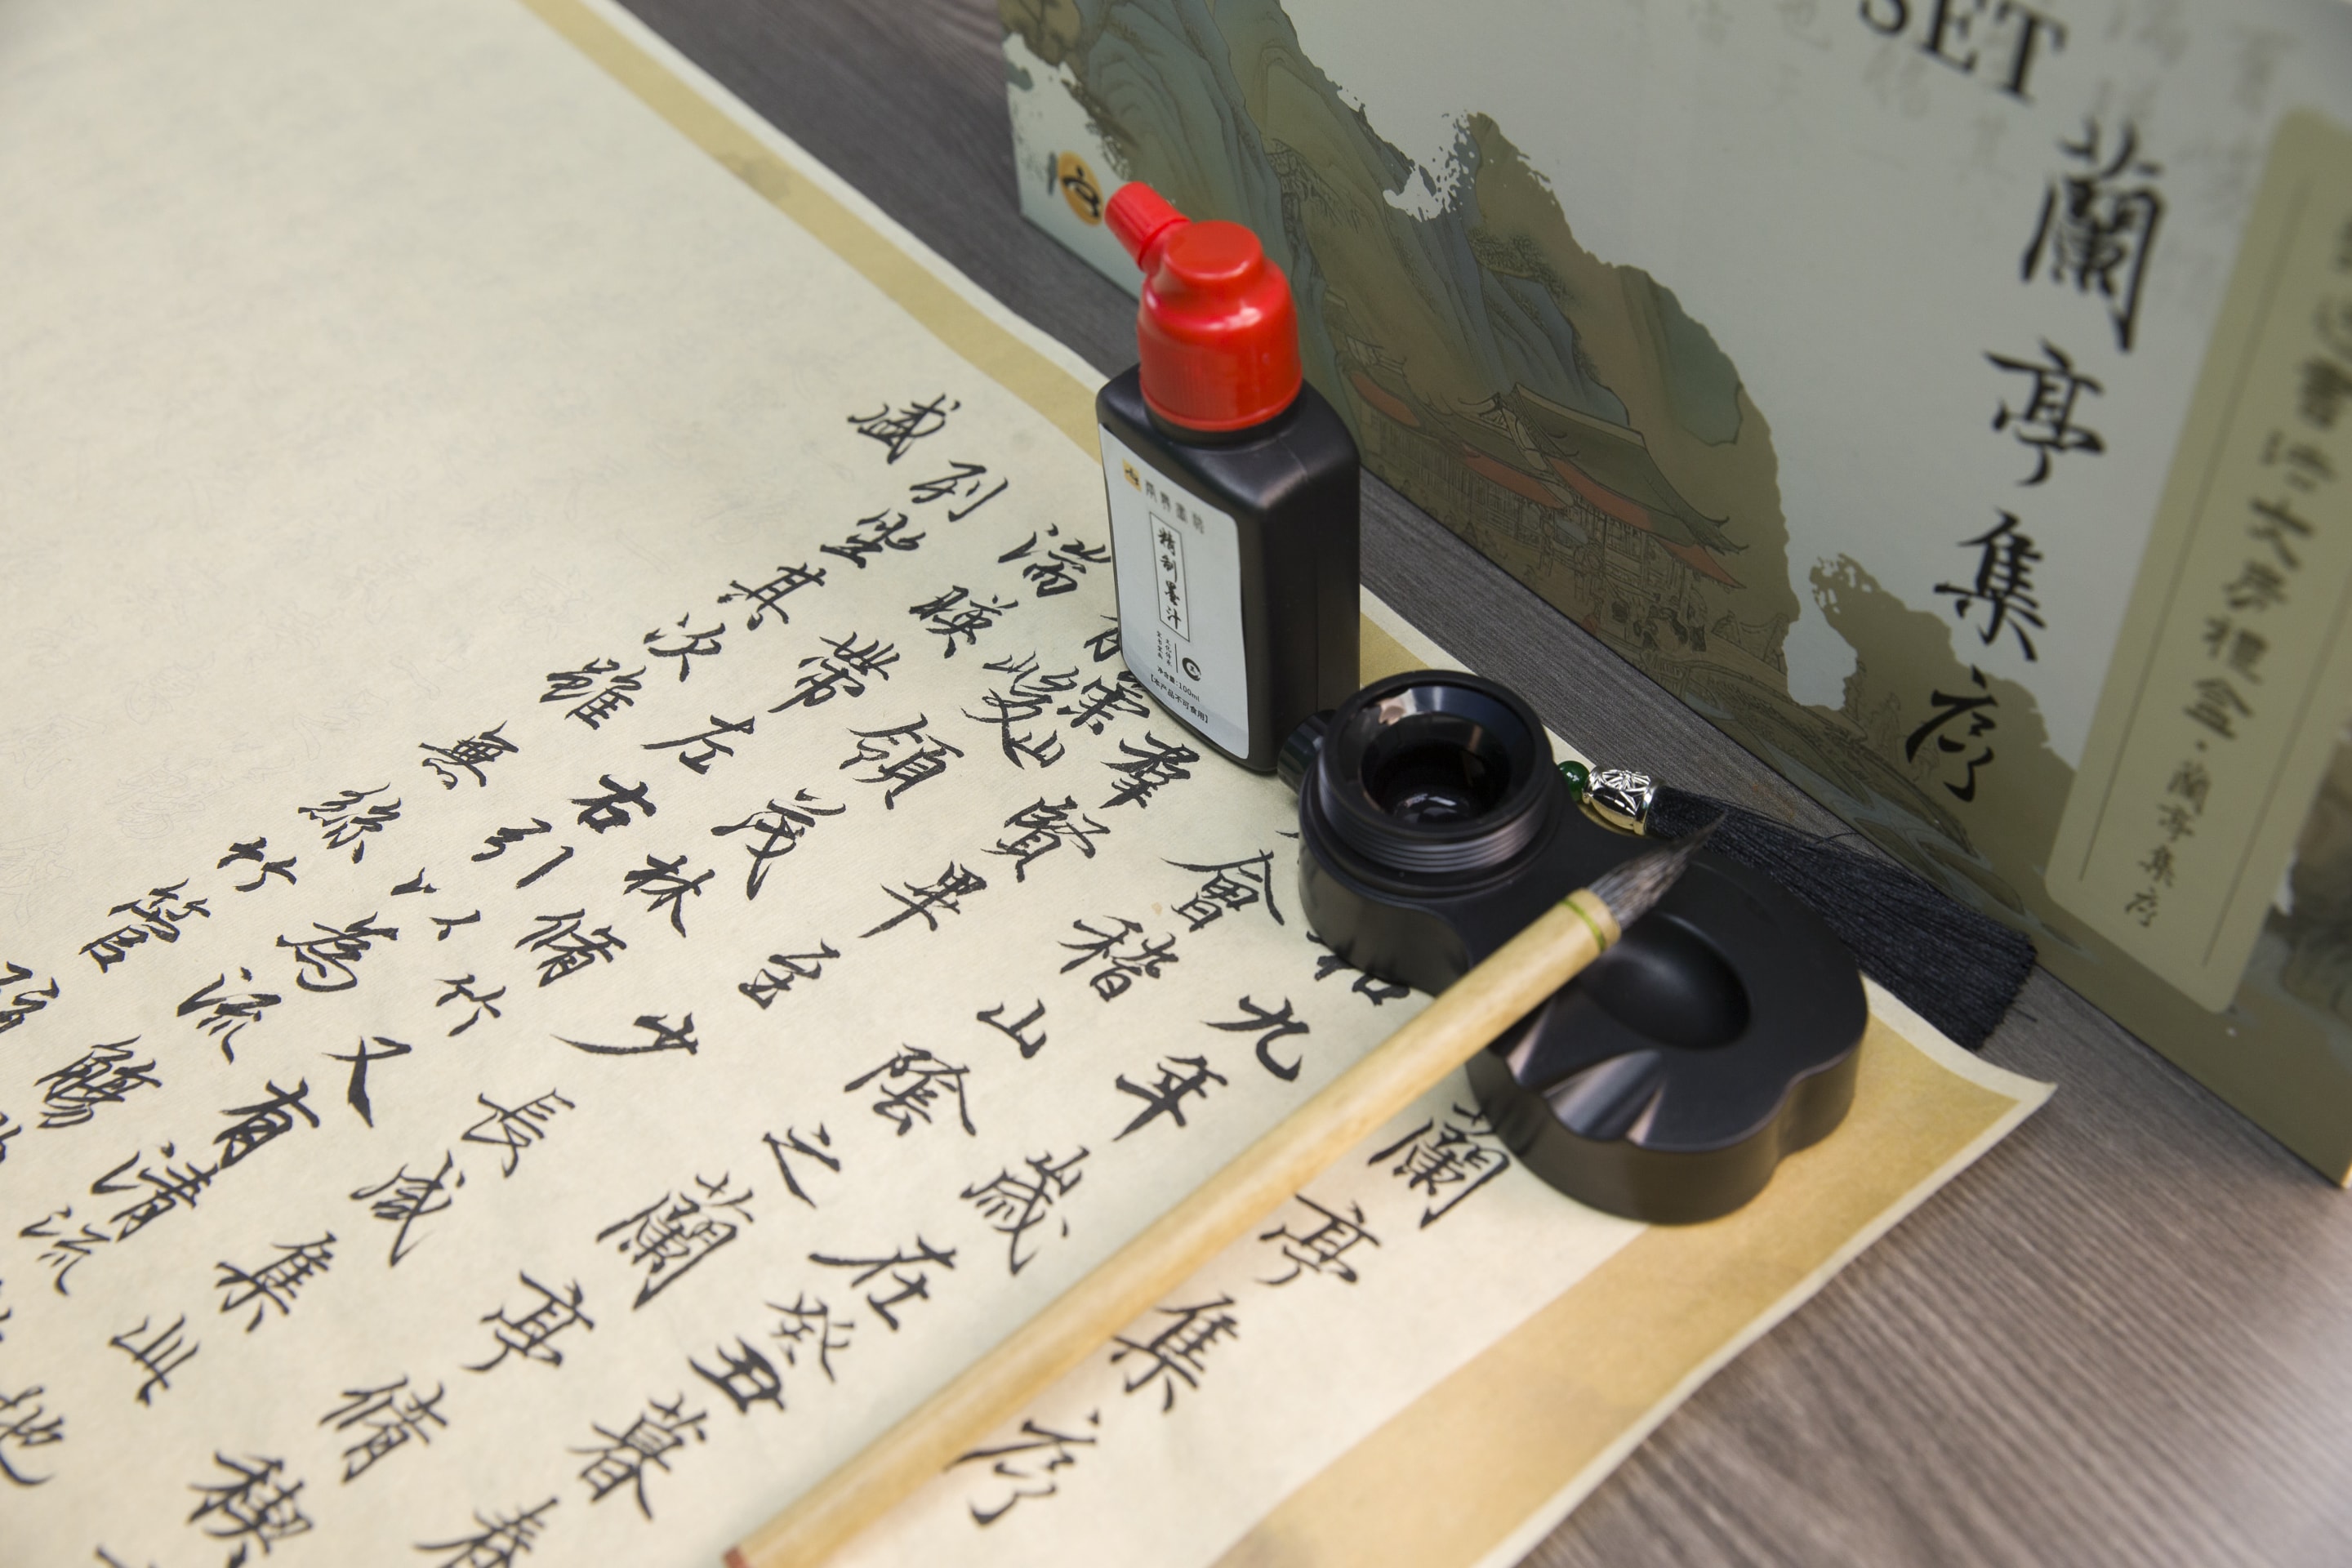 SET
蘭亭集序
書法大序禮盒·蘭亭集序
精制墨汁
净含量:100ml
【本产品不可食用】
蘭亭集序
和九年歲在癸丑暮春
會稽山陰之蘭亭脩稧
羣賢畢至少長咸集此地
崇山峻領茂林脩竹又有清流
湍映帶左右引以為流觴
列坐其次雖無絲竹管
盛